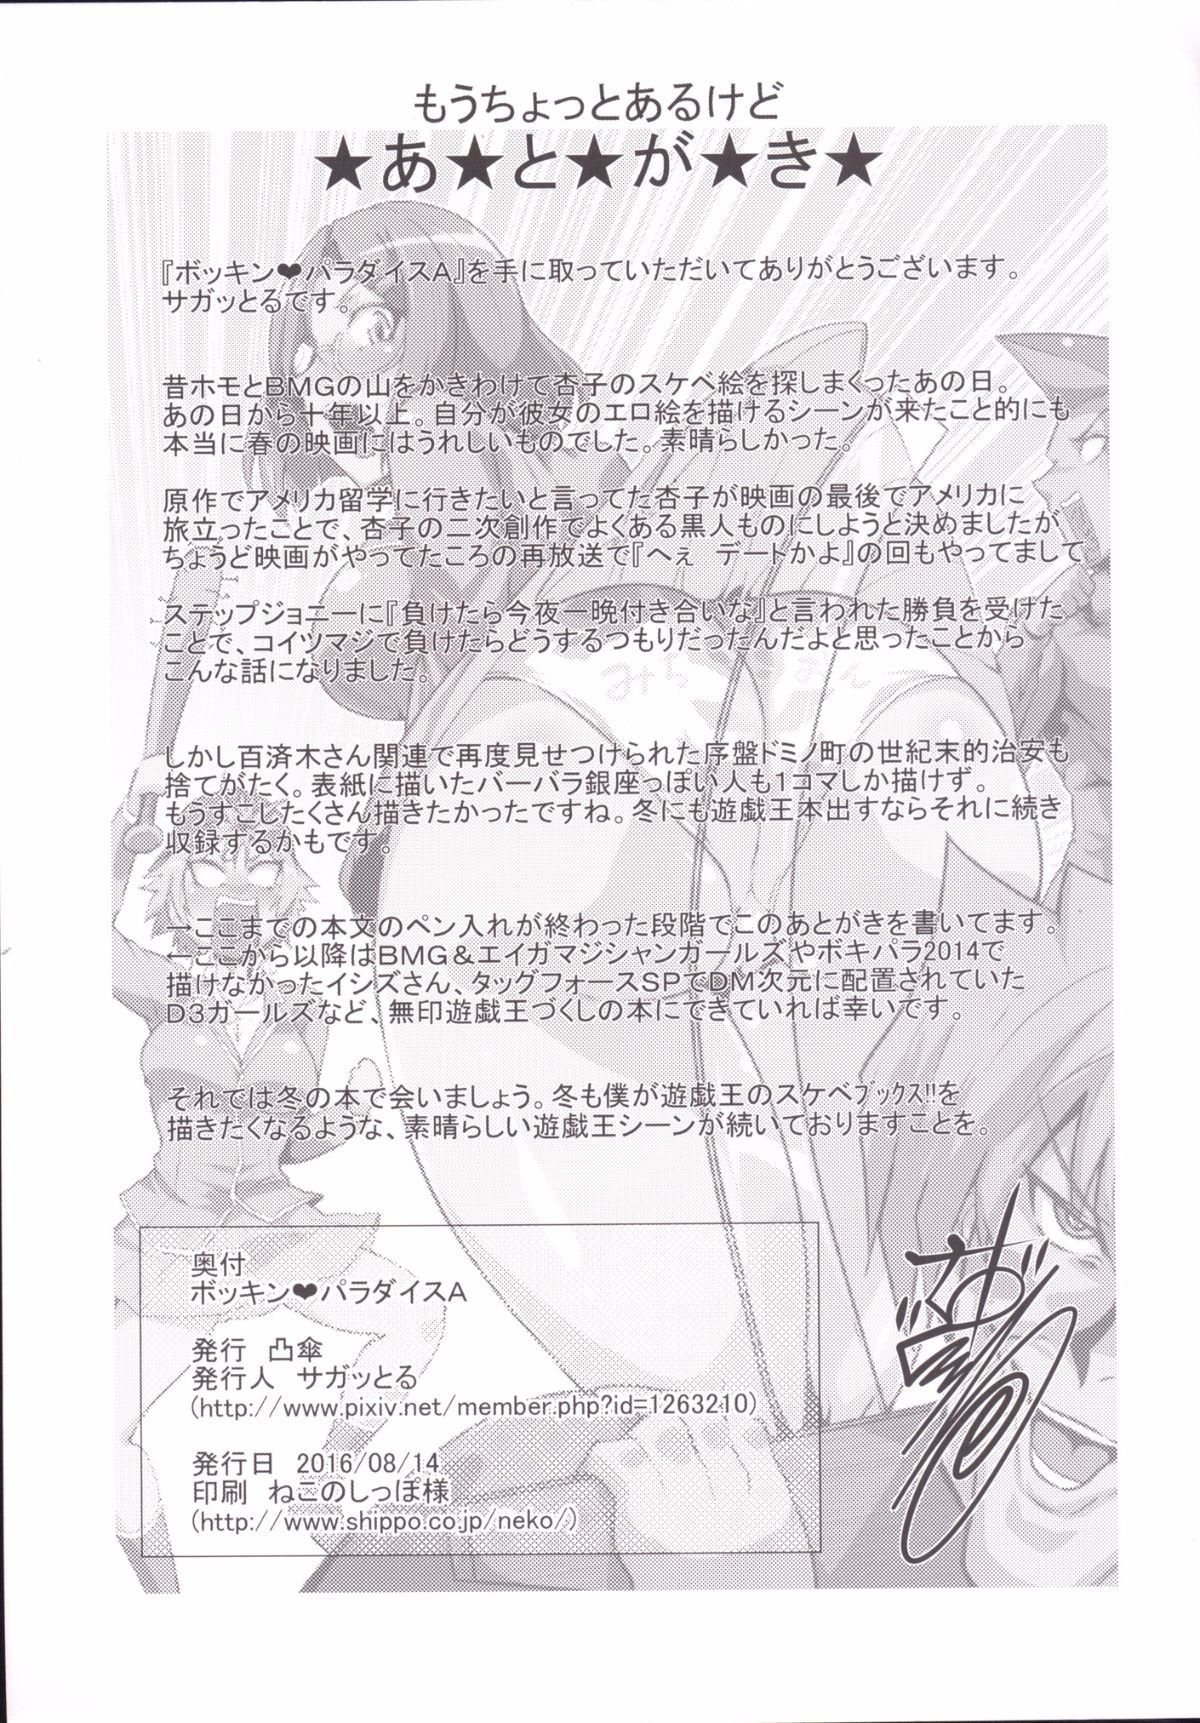 もうちょっとあるけど
★あ★と★が★き★
『ボッキン❤パラダイスA』を手に取っていただいてありがとうございます。
サガッとるです。
昔ホモとBMGの山をかきわけて杏子のスケベ絵を探しまくったあの日。
あの日から十年以上。自分が彼女のエロ絵を描けるシーンが来たこと的にも
本当に春の映画にはうれしいものでした。素晴らしかった。
原作でアメリカ留学に行きたいと言ってた杏子が映画の最後でアメリカに
旅立ったことで、杏子の二次創作でよくある黒人ものにしようと決めましたが
ちょうど映画がやってたころの再放送で『へぇ　デートかよ』の回もやってまして
ステップジョニーに『負けたら今夜一晩付き合いな』と言われた勝負を受けた
ことで、コイツマジで負けたらどうするつもりだったんだよと思ったことから
こんな話になりました。
しかし百済木さん関連で再度見せつけられた序盤ドミノ町の世紀末的治安も
捨てがたく。表紙に描いたバーバラ銀座っぽい人も1コマしか描けず。
もうすこしたくさん描きたかったですね。冬にも遊戯王本出すならそれに続き
収録するかもです。
→ここまでの本文のペン入れが終わった段階でこのあとがきを書いてます。
←ここから以降はBMG＆エイガマジシャンガールズやボキパラ2014で
描けなかったイシズさん、タッグフォースSPでDM次元に配置されていた
D3ガールズなど、無印遊戯王づくしの本にできていれば幸いです。
それでは冬の本で会いましょう。冬も僕が遊戯王のスケベブックス!!を
描きたくなるような、素晴らしい遊戯王シーンが続いておりますことを。
奥付
ボッキン❤パラダイスA
発行　凸傘
発行人　サガッとる
(http://www.pixiv.net/member.php?id=1263210)
発行日　2016/08/14
印刷　ねこのしっぽ様
(http://www.shippo.co.jp/neko/)